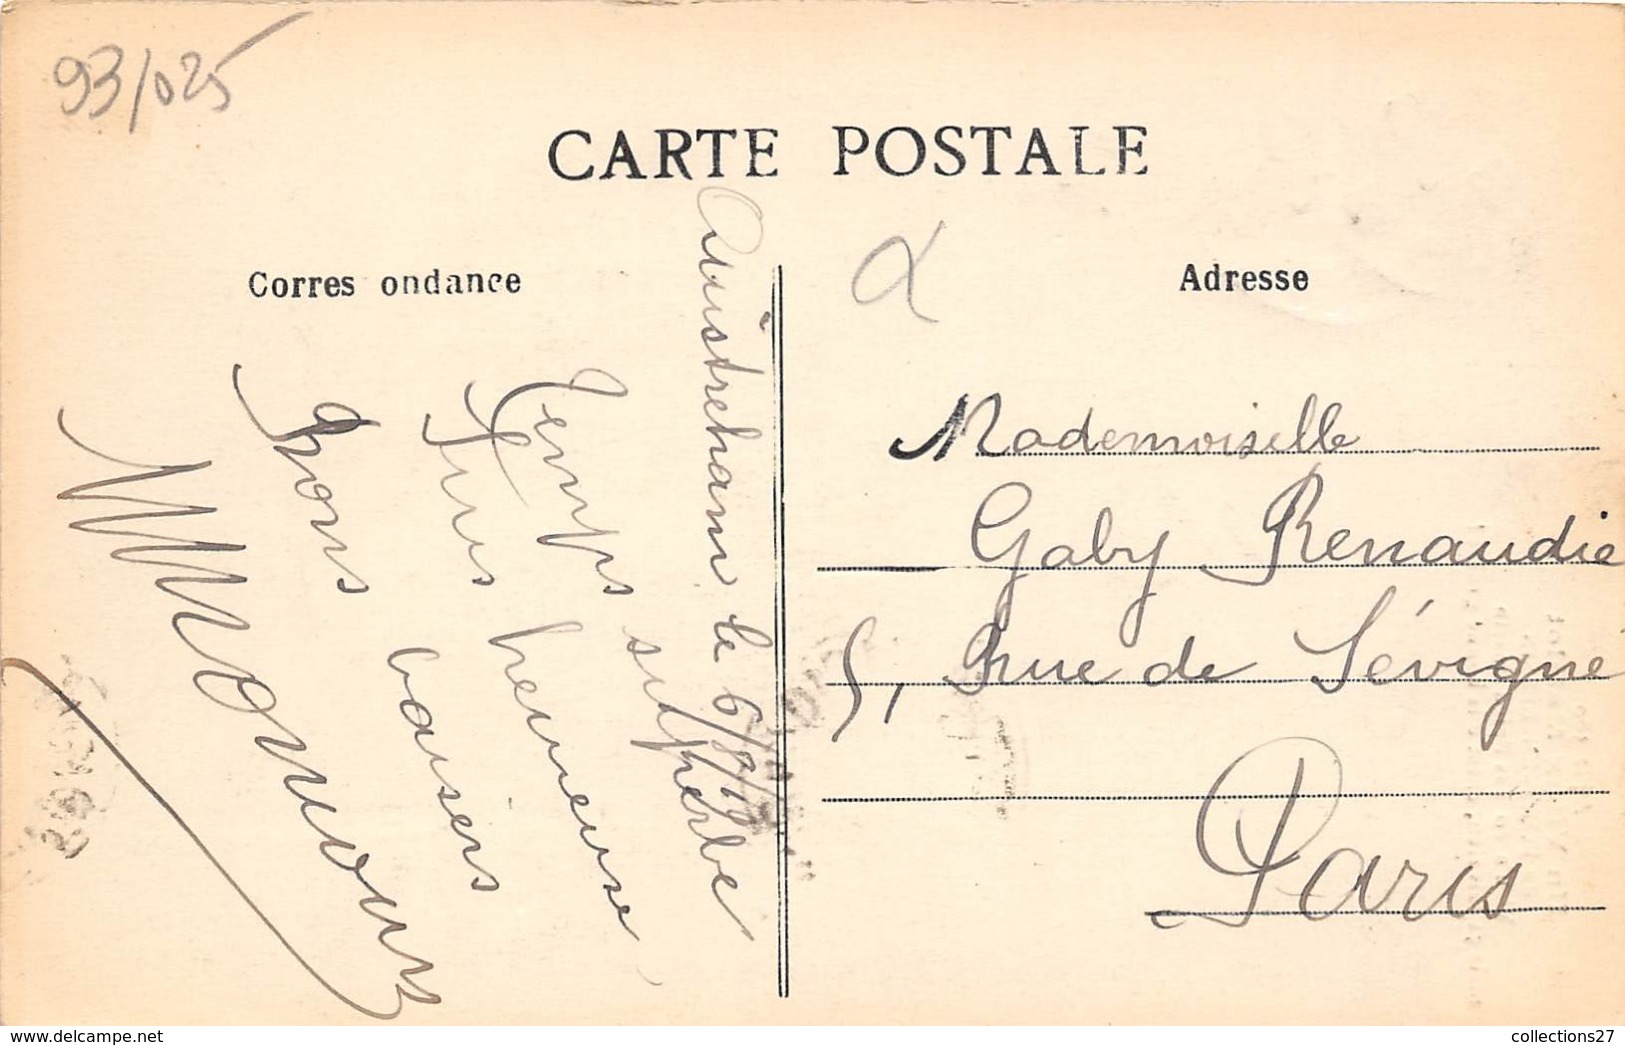 93/025
CARTE POSTALE
Corres ondance
Adresse
Ouistreham le 6/8/
Temps superbe
Suis heureuse
Bons baisers
Mademoiselle
Gaby Renaudie
5, Rue de Sévigné
Paris
collections27